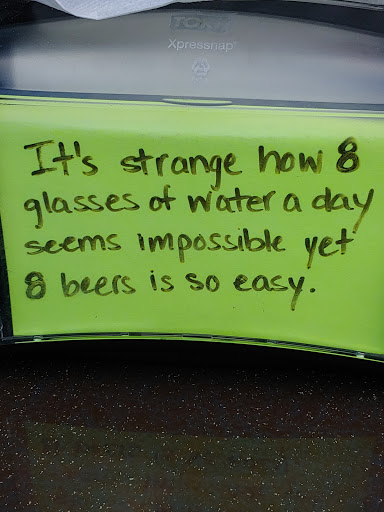 TORK
Xpressnap®
It's strange how 8
glasses of water a day
seems impossible yet
8 beers is so easy.